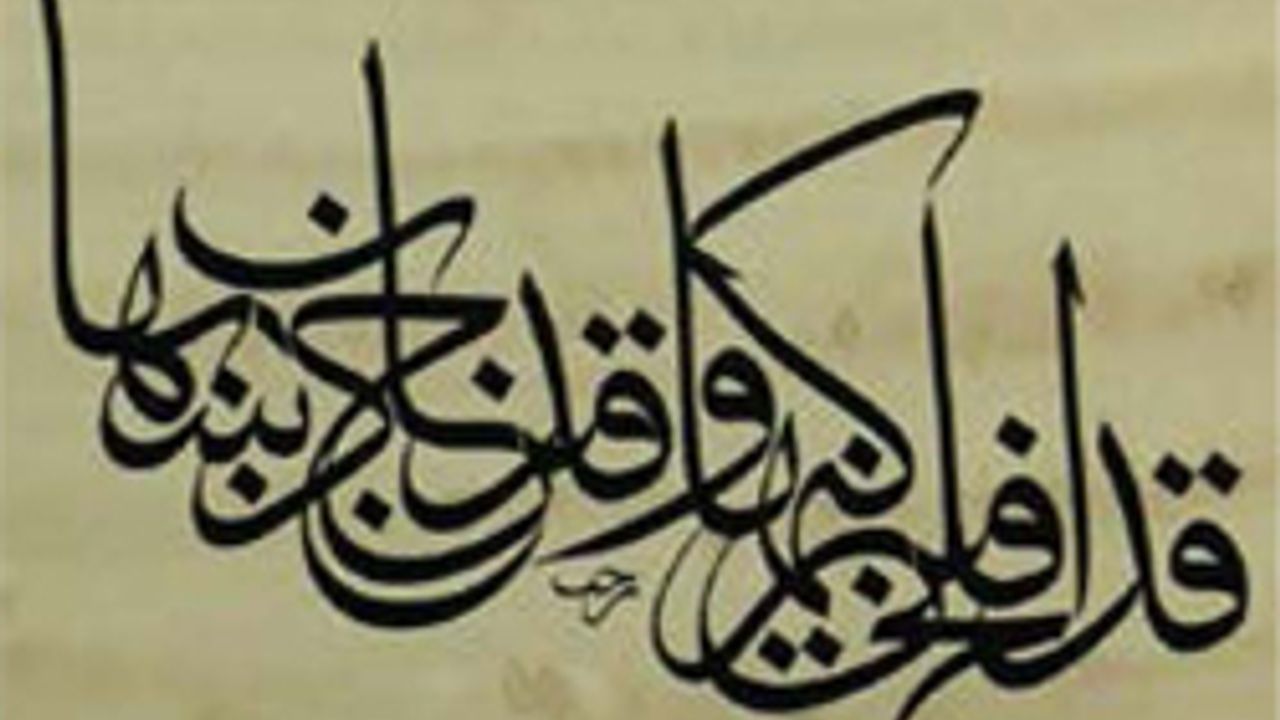 قد افلح من زكيها وقد خاب من دسيها